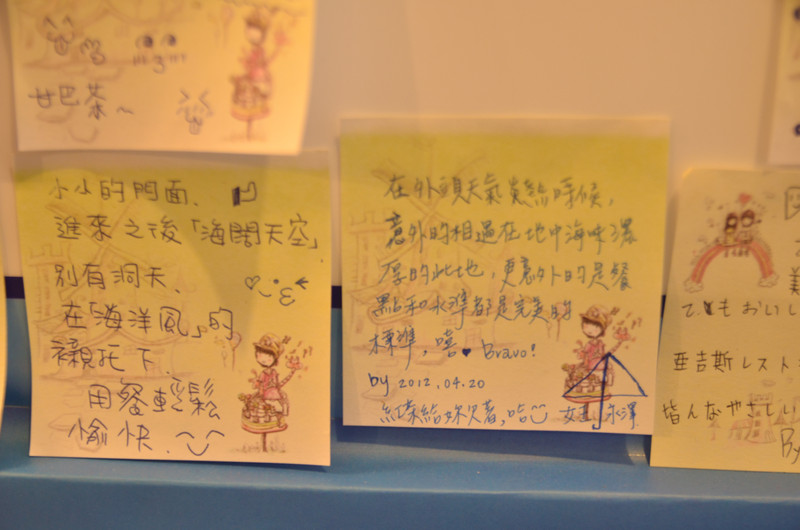 甘巴茶~
小小的門面、
進來之後「海闊天空」
別有洞天、
在「海洋風」的
襯托下、
用餐輕鬆
愉快、
在外頭天氣炎熱時候,
意外的相遇在地中海味濃
厚的此地,更意外的是餐
點和水準都是完美的
標準,嘻♥Bravo!
by 2012.04.20
紅茶給妳
とてもおいし
亜吉斯レスト
皆んなやさしい
By